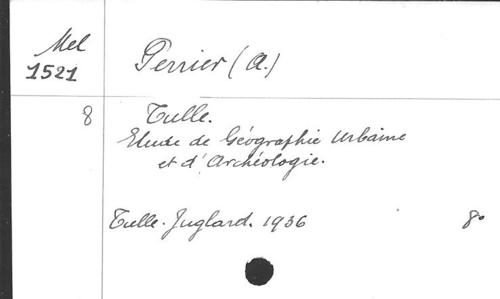 Mel
1521
Perrier (A.)
8
Tulle.
Etude de Géographie Urbaine
et d'Archéologie.
Tulle. Juglard. 1936
8°